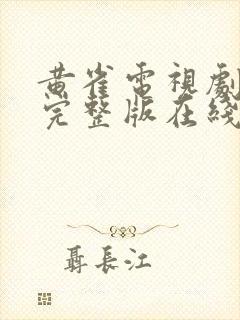 黄雀電視劇
完整版在綫
聶長江